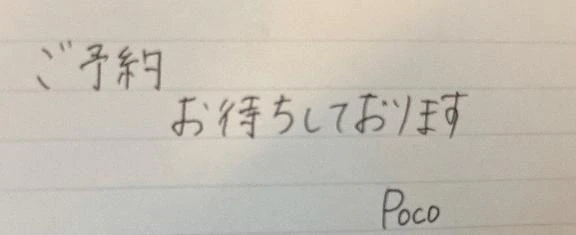 ご予約
お待ちしております
Poco